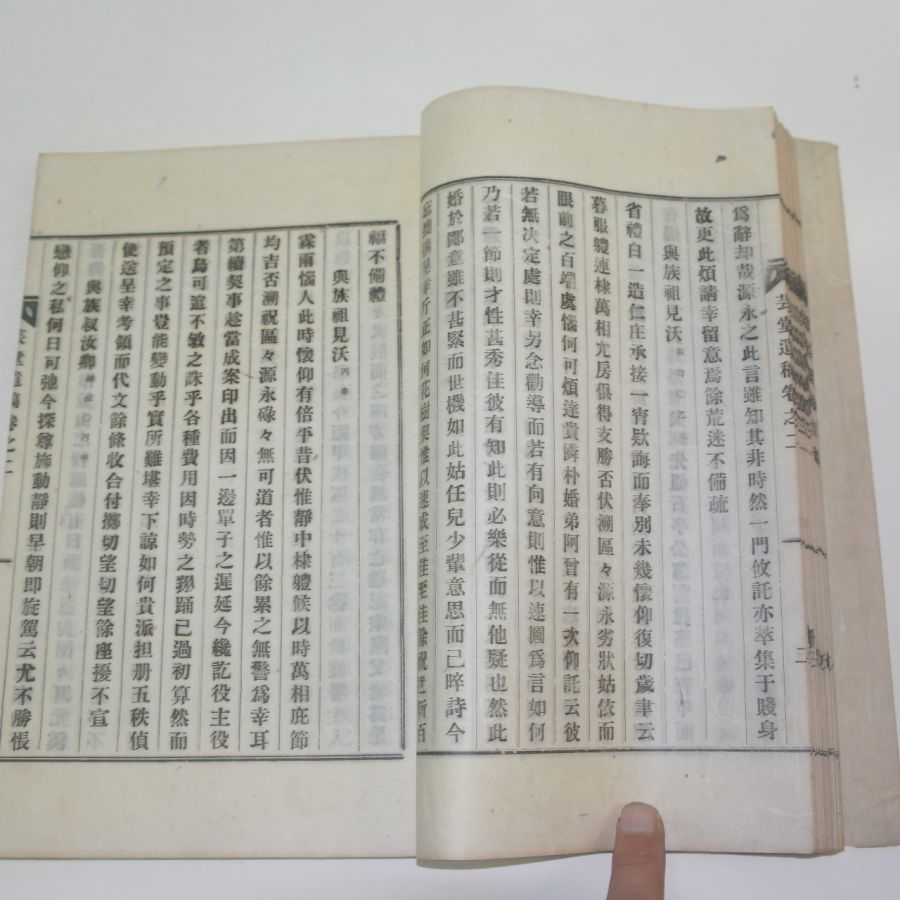 芸堂遺稿卷之二
爲辭却哉源永之此言雖知其非時然一門攸託亦萃集于賤身
故更此煩請幸留意焉餘荒迷不備疏
與族祖見沃
省禮白一造仁庄承接一宵欵誨而奉別未幾懷仰復切歲聿云
暮服軆連棣萬相亢房俱得支勝否伏溯區々源永劣狀姑依而
眼前之百端處惱何可煩達貴隣朴婚弟阿曾有一次仰託云彼
若無决定處則幸另念勸導而若有向意則惟以速圖爲言如何
乃若一節則才性甚秀佳彼有知此則必樂從而無他疑也然此
婚於鄙意雖不甚緊而世機如此姑任兒少輩意思而已晬詩今
正如何花樹契惟以速成至佳至佳餘祝
福不備禮
與族祖見沃 丙申
霖雨惱人此時懷仰有倍平昔伏惟靜中棣軆候以時萬相庇節
均吉否溯祝區々源永碌々無可道者惟以餘累之無警爲幸耳
第續契事趁當成案印出而因一邊單子之遲延今纔訖役主役
者烏可逭不敏之誅乎各種費用因時勢之踊已過初算然而
預定之事豈能變動乎實所難堪幸下諒如何貴派担册五秩偵
便送呈幸考領而代文餘條收合付擲切望切望餘座擾不宣
與族叔汝卿
戀仰之私何日可弛今探尊旆動靜則早朝即旋駕云尤不勝悵
芸堂遺稿卷之二